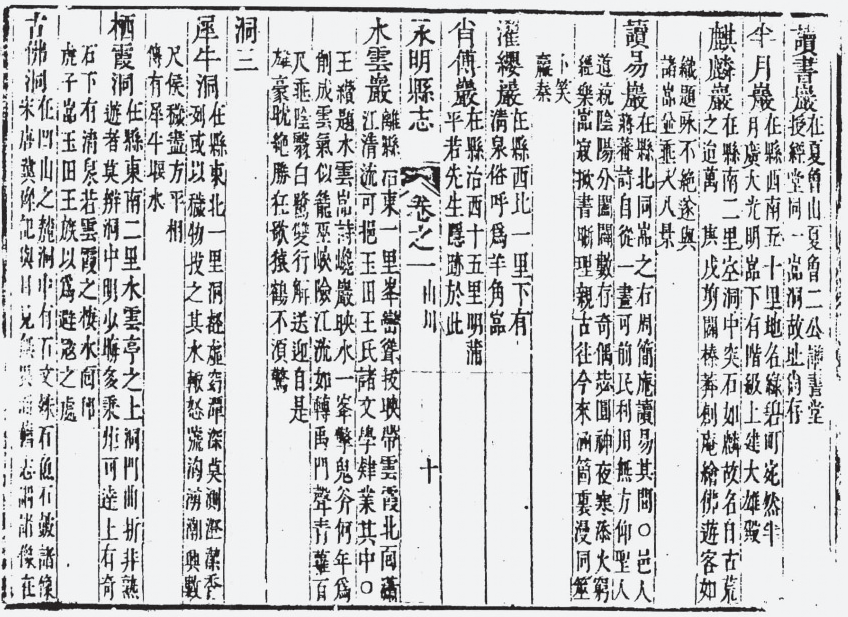 讀書巖在夏魯山夏魯二公讀書堂
授經堂同一嵓洞故址尚存
半月巖在縣西南五十里地名綠碧町宛然半
月廣大光明嵓下有階級上建大雄殿
麒麟巖在縣南二里空洞中突石如麟故名自古荒
之迨萬 庚戌剪闢榛莽創庵繪佛遊客如
織題咏不絕遂與
諸嵓並垂八景
讀易巖在縣北同嵓之右周簡庵讀易其間○邑人
蔣蕃詩自從一畫可前民利用無方仰聖人
道就陰陽分闔闢數存奇偶 圓神夜寒添火窮
經樂嵓寂掀書晰理親古往今來涵箇裏漫同
小笑
嬴秦
濯纓巖在縣西北一里下有
清泉俗呼爲羊角嵓
肖傅巖在縣治西十五里明蒲
平若先生隱跡於此
永明縣志 卷之一 山川 十
水雲巖離縣治東一里峯巒聳拔映帶雲霞北向瀟
江清流可挹玉田王氏諸文學肄業其中○
王 題水雲嵓詩巉巖映水一峯擎鬼斧何年爲
削成雲氣似籠巫峽險江流如轉禹門聲青蘿百
尺垂陰翳白鷺雙行解送迎自是
雄豪耽艷勝狂歌猿鶴不須驚
洞三
犀牛洞在縣東北一里洞 虛窈潭深莫測 潔香
列或以穢物投之其水輙怒號洶湧潮興數
尺俟穢盡方平相
傳有犀牛堰水
栖霞洞在縣東南二里水雲亭之上洞門曲折非熟
遊者莫辨洞中明少晦多乘炬可達上有奇
石下有清泉若雲霞之棲水向
虎子嵓玉田王族以爲避寇之處
古佛洞在凹山之麓洞中有石文殊石魚石鼓諸像
宋唐 記與目見無異 舊志謂諸像在